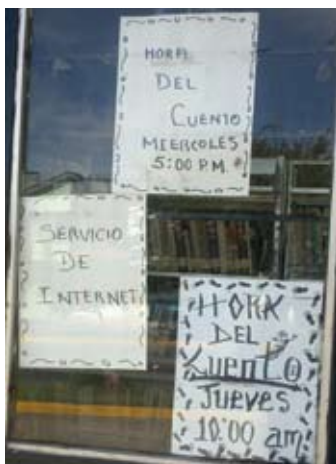 HORA
DEL
CUENTO
MIERCOLES
5:00 P.M.
SERVICIO
DE
INTERNET
HORA
DEL
CUENTO
JUEVES
10:00 am